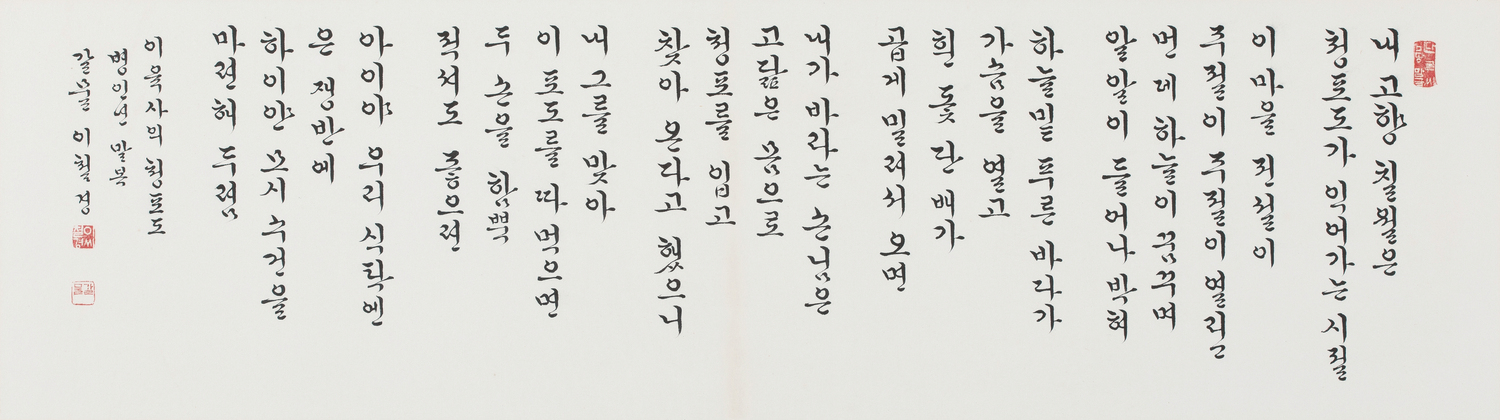 내 고향 칠월은
청포도가 익어가는 시절
이 마을 전설이
주절이 주절이 열린
먼 데 하늘이 꿈꾸며
알알이 들어나 박혀
하늘밑 푸른 바다가
가슴을 열고
흰 돛 단 배가
곱게 밀려서 오면
내가 바라는 손님은
고닯은 몸으로
청포를 입고
찾아 온다고 했으니
내 그를 맞아
이 포도를 따 먹으면
두 손을 함뿍
적셔도 좋으련
아이야 우리 식탁엔
은 쟁반에
하이얀 모시 수건을
마련해 두렴
이육사의 청포도
병인년 말복
갈물 이철경